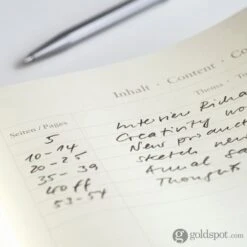 Inhalt · Content · Co
Thema
Seiten / Pages
5 Interview Richa
10-14 Creativity wo
20-25 New product
35-39 sketch new
40 ff Annual
53-54 Thoughts
goldspot.com